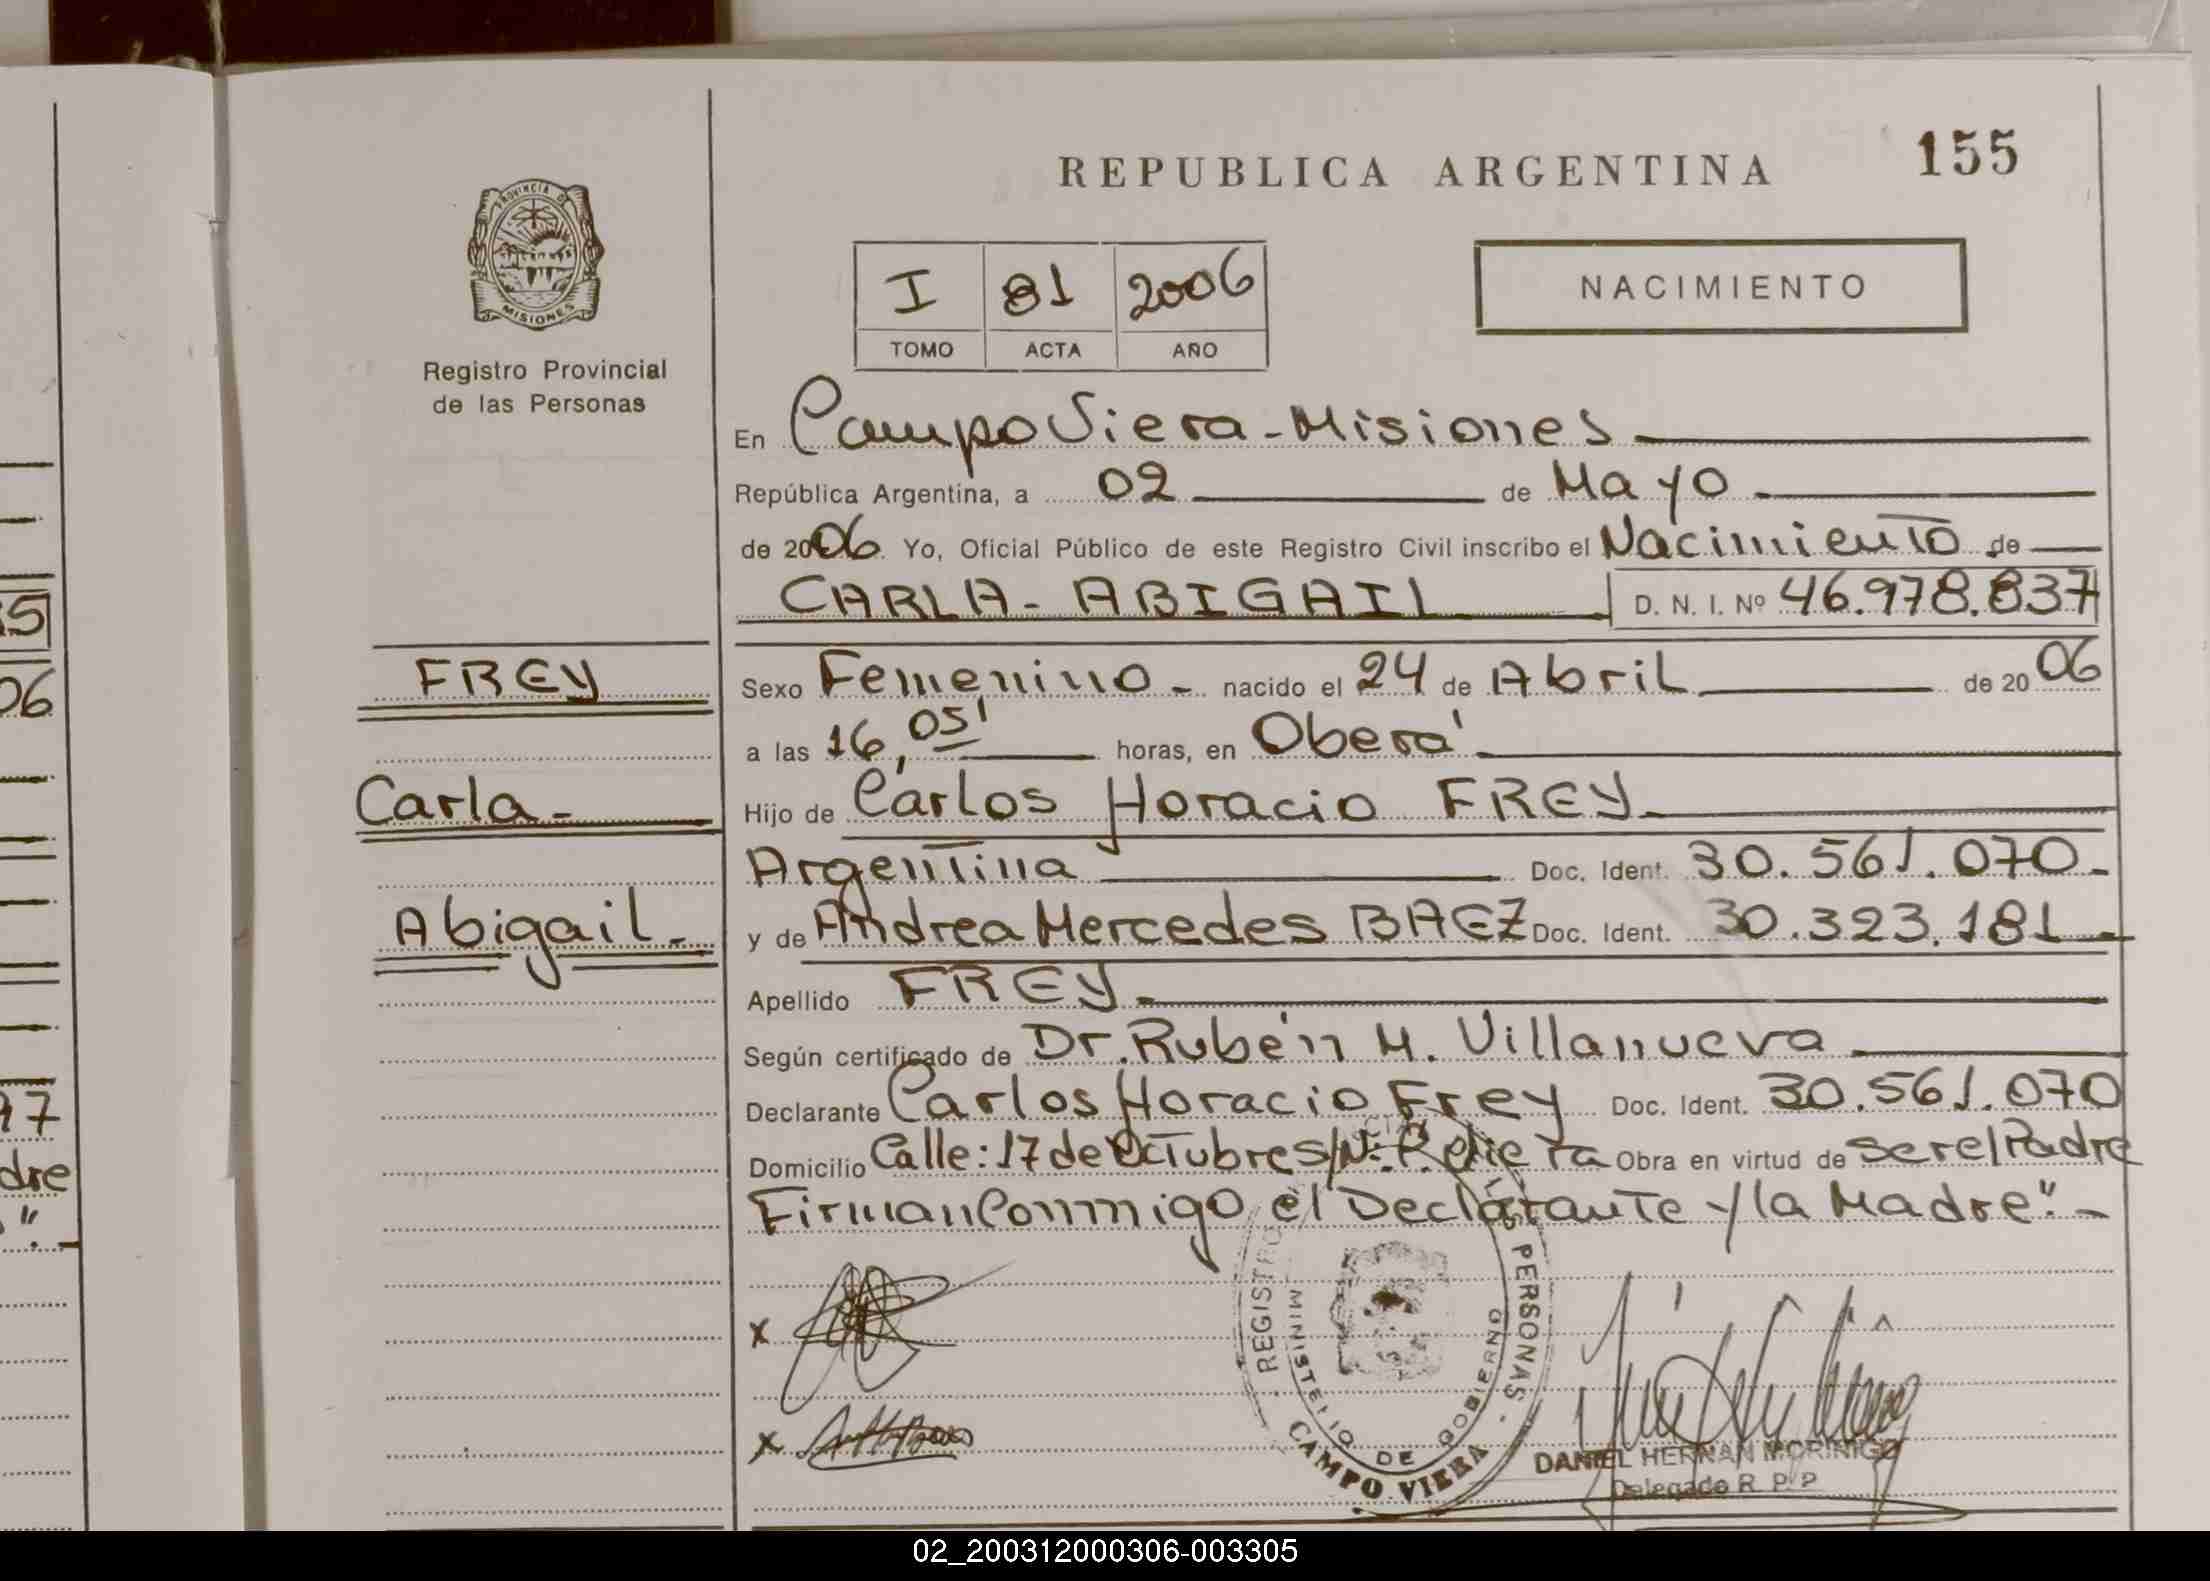 155
REPUBLICA ARGENTINA
PROVINCIA DE
MISIONES
Registro Provincial
de las Personas
NACIMIENTO
I 81 2006
TOMO ACTA AÑO
En Campo Viera - Misiones
República Argentina, a 02 de Mayo
de 2006 Yo, Oficial Público de este Registro Civil inscribo el Nacimiento de
CARLA - ABIGAIL D. N. I. Nº 46.978.837
FREY
Sexo Femenino - nacido el 24 de Abril de 2006
a las 16,05' horas, en Oberá
Carla -
Hijo de Carlos Horacio FREY
Argentina Doc. Ident. 30.561.070 -
Abigail -
y de Andrea Mercedes BAEZ Doc. Ident. 30.323.181
Apellido FREY
Según certificado de Dr. Rubén M. Villanueva
Declarante Carlos Horacio Frey Doc. Ident. 30.561.070
Domicilio Calle: 17 de Octubre s/Nº Obra en virtud de ser el Padre
Firman Conmigo el Declarante y la Madre". -
REGISTRO PERSONAS
MINISTERIO DE GOBIERNO
CAMPO VIERA
x
x
DANIEL HERNAN MORINIGO
Delegado R. P. P
35
06
97
dre
".-
02_200312000306-003305